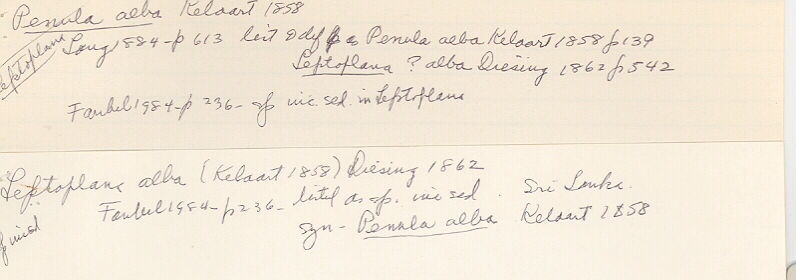 Penula alba Kelaart 1858
Leptoplana
Lang 1884-p 613 list & df as Penula alba Kelaart 1858 p139
Leptoplana ? alba Diesing 1862 p542
Faubel 1984-p 236- sp inc. sed. in Leptoplana
Leptoplana alba (Kelaart 1858) Diesing 1862
Faubel 1984-p236- listed as sp. inc sed. Sri Lanka.
syn- Penula alba Kelaart 1858